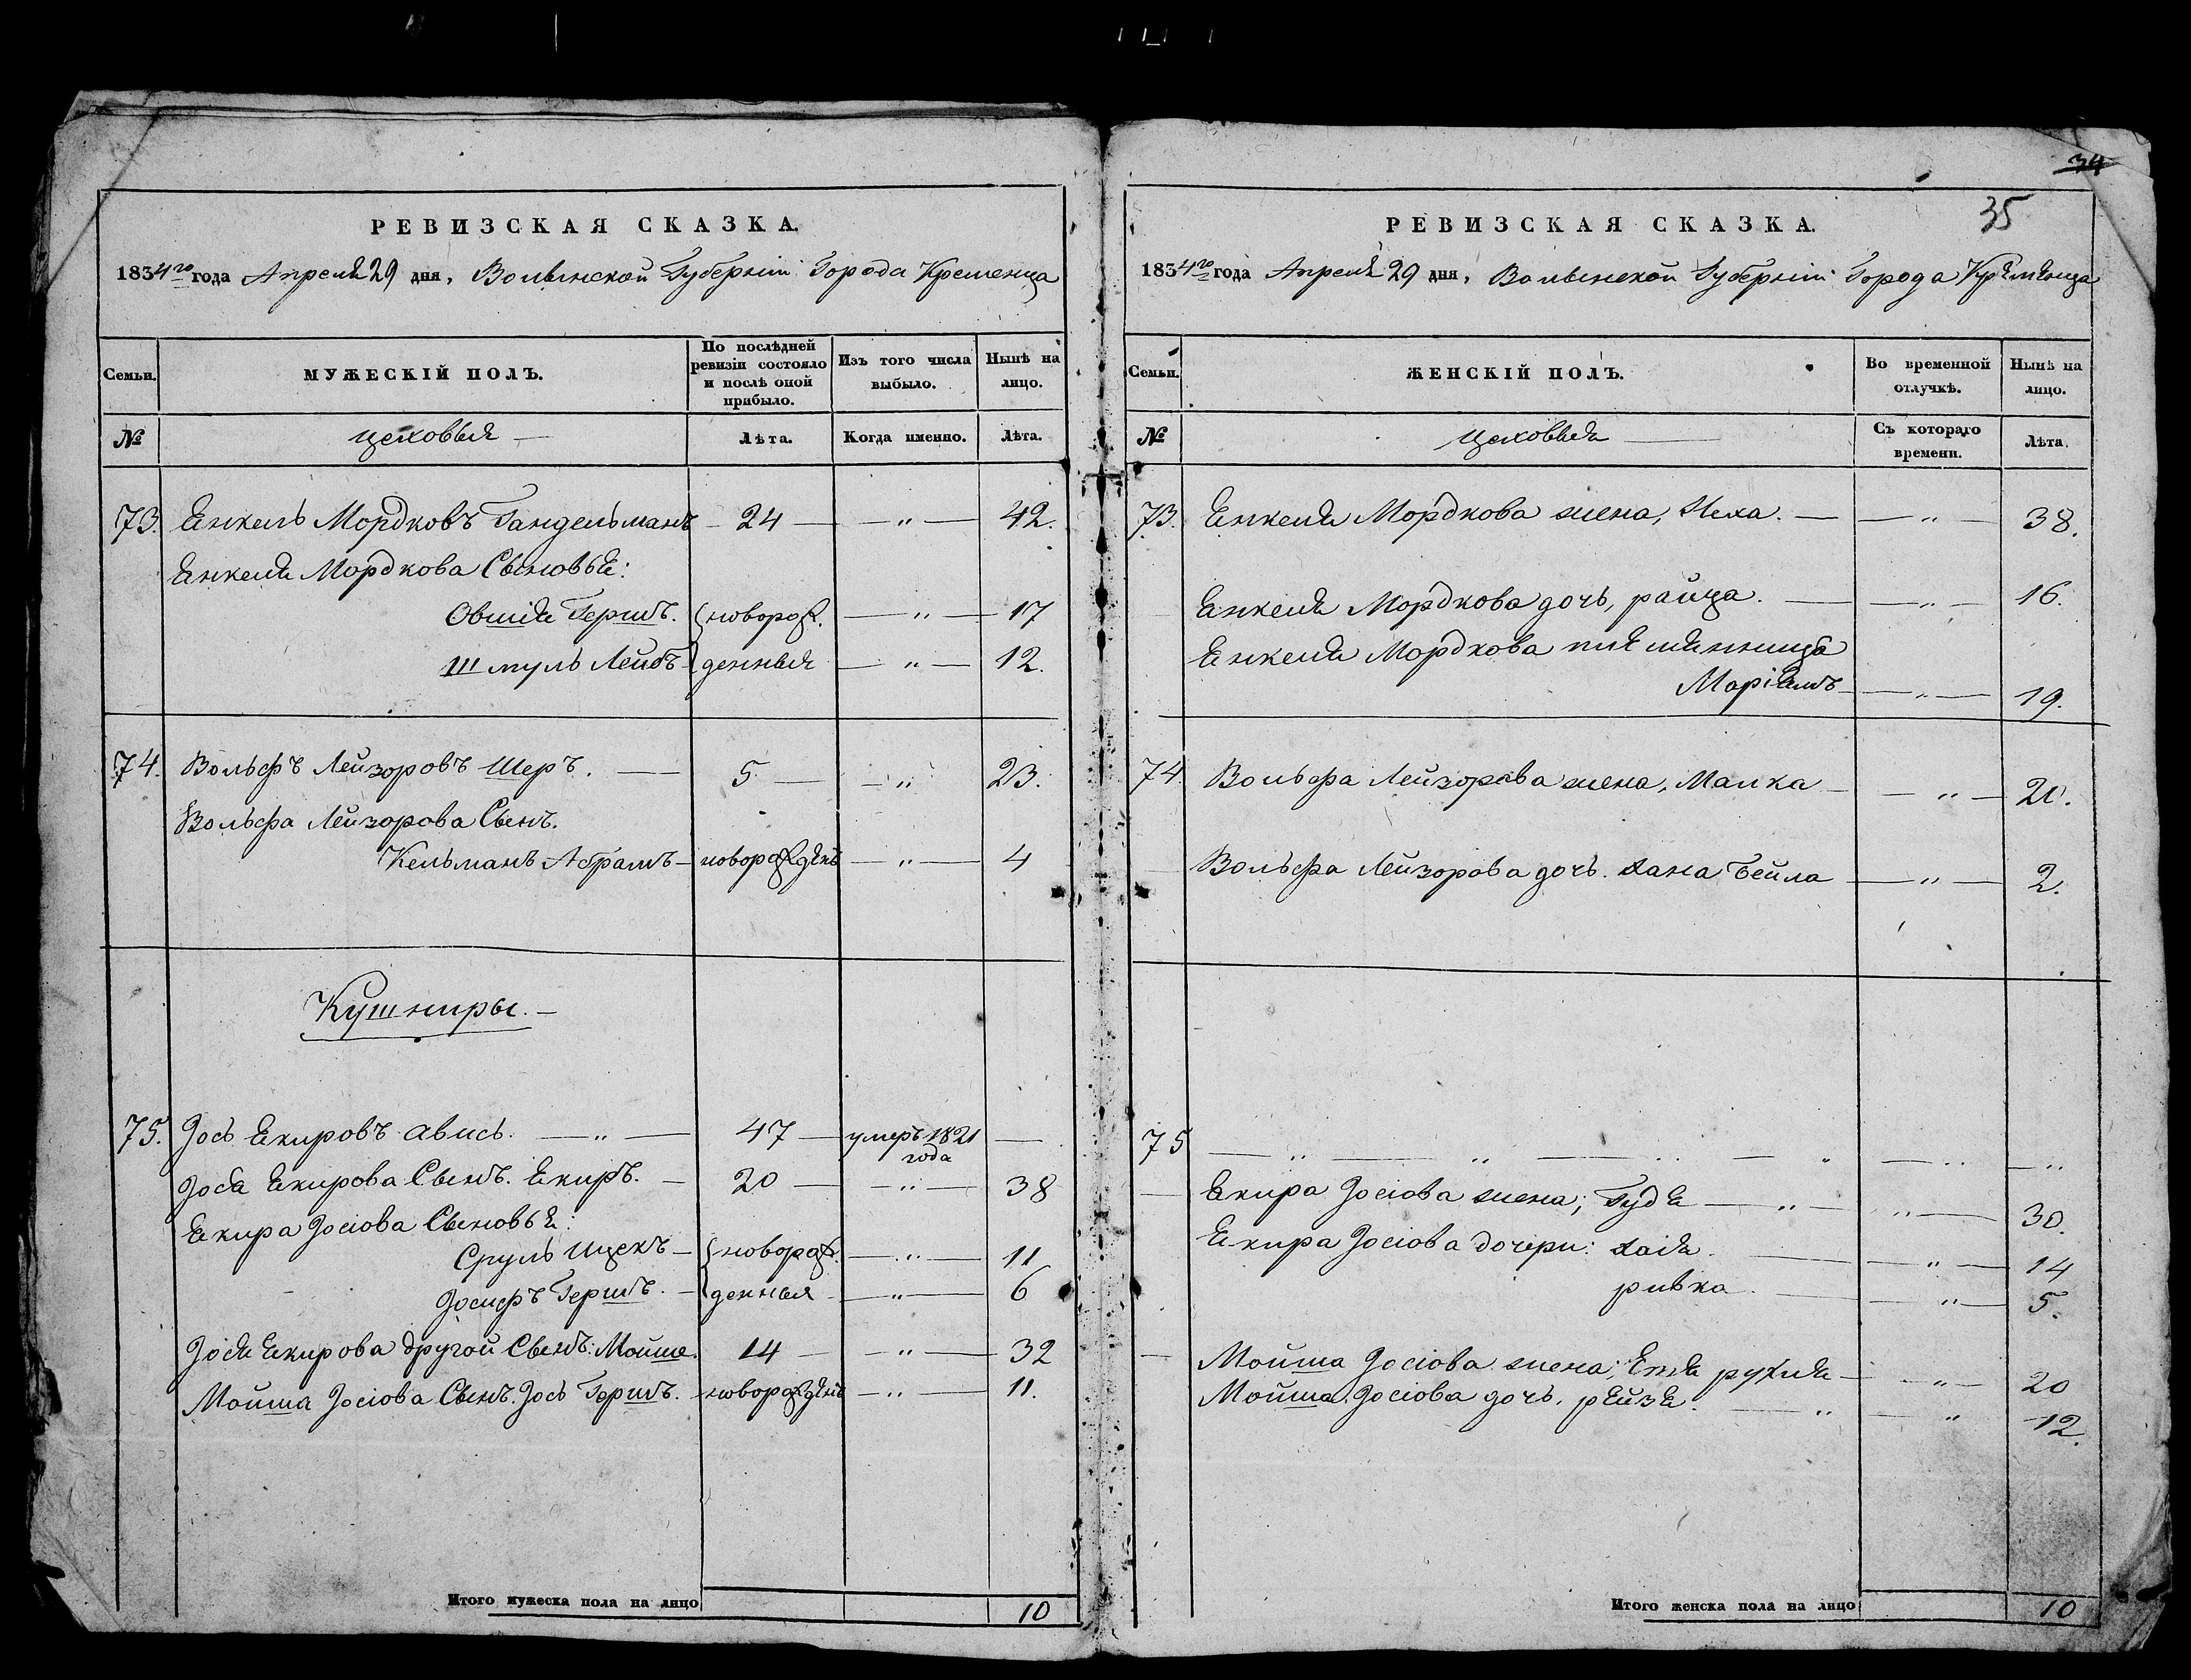 34
РЕВИЗСКАЯ СКАЗКА.
1834го года Апреля 29 дня, Волынской Губерніи Города Кременца
Семьи.
МУЖЕСКІЙ ПОЛЪ.
По послѣдней ревизіи состояло и послѣ оной прибыло.
Изъ того числа выбыло.
Нынѣ на лицо.
№
цеховыя —
Лѣта.
Когда именно.
Лѣта.
73. Енкель Мордковъ Гандельманъ — 24 — — " — 42.
Енкеля Мордкова Сыновья:
Овшія Гершъ. { новорож. — " — 17
Шмуль Лейбъ { денныя — " — 12.
74. Вольфъ Лейзоровъ Шеръ. — 5 — — " 23.
Вольфа Лейзорова Сынъ.
Кельманъ Абрамъ — новорожденъ — " — 4
Кушниры. —
75. Јось Екировъ Авись. — " — 47 — умеръ 1821 года —
Јося Екирова Сынъ. Екиръ. — 20 — — " — 38
Екира Јосіова Сыновья:
Сруль Ицекъ — { новорож. — " — 11
Јосифъ Гершъ. — { денныя — " — 6
Јося Екирова другой Сынъ: Мойша. 14 — — " — 32
Мойша Јосіова Сынъ. Јось Гершъ. — новорожденъ — " — 11.
Итого мужеска пола на лицо 10
35
РЕВИЗСКАЯ СКАЗКА.
1834го года Апреля 29 дня, Волынской Губерніи Города Кременца
Семьи.
ЖЕНСКІЙ ПОЛЪ.
Во временной отлучкѣ.
Нынѣ на лицо.
№
цеховыя —
Съ котораго времени.
Лѣта.
73. Енкеля Мордкова жена, Неха. — — " — 38.
Енкеля Мордкова дочь, райца. — — " — 16.
Енкеля Мордкова племянница
Маріямъ — — " — 19.
74. Вольфа Лейзорова жена, Малка — — " — 20.
Вольфа Лейзорова дочь. Хана Бейла — " — 2.
75 — " — " — " — " — " — "
Екира Јосіова жена; Гудя — " — " — 30.
Екира Јосіова дочери: Хаія. — — " — 14
ривка. — — " — 5.
Мойша Јосіова жена; Етя рухля — — " — 20
Мойша Јосіова дочь. рейзя. — " — " 12.
Итого женска пола на лицо 10